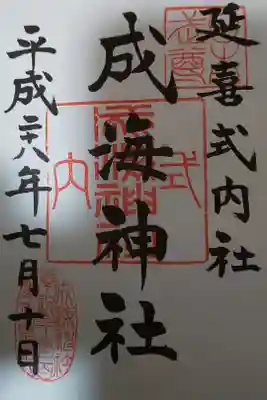 延喜式内社
成海神社
平成二八年七月十日
式
内